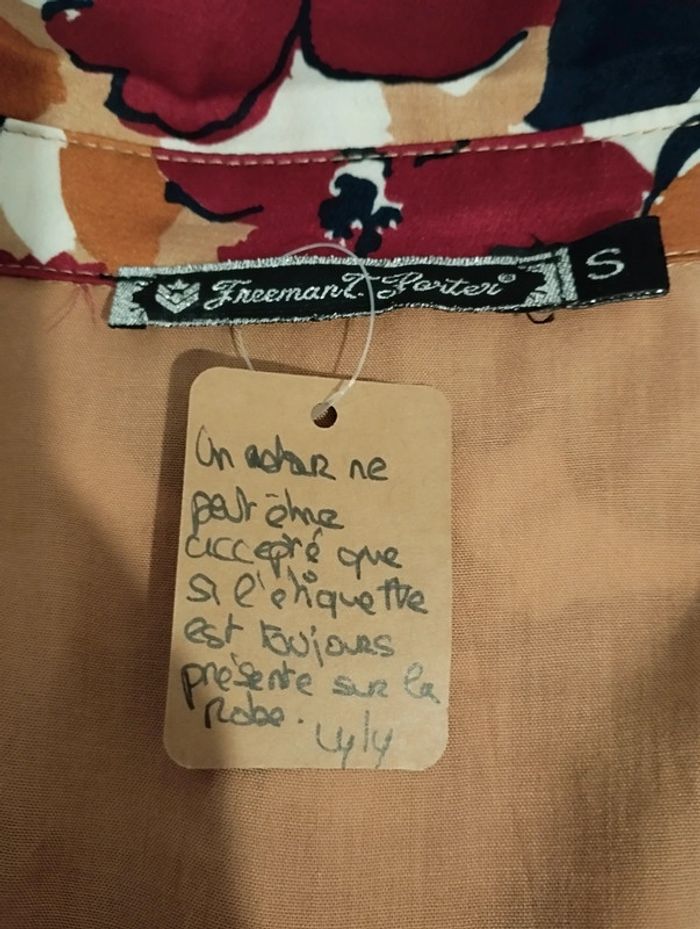 Freeman T. Porter®
S
Un retour ne
peut être
accepté que
si l'étiquette
est toujours
présente sur la
Robe.
Lyly